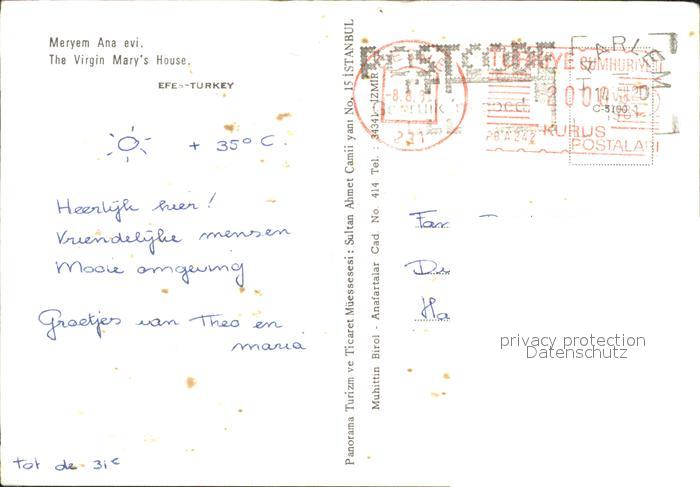 Meryem Ana evi.
The Virgin Mary's House.
EFES-TURKEY
+ 35° C.
Heerlijk hier!
Vriendelijke mensen
Mooie omgeving
Groetjes van Theo en
maria
tot de 31e
Panorama Turizm ve Ticaret Müessesesi : Sultan Ahmet Camii yanı No. 15 İSTANBUL
Muhittin Birol - Anafartalar Cad. No. 414 Tel. : 34341 İZMİR
POSTCODE
TÜRKİYE CUMHURİYE
KURUŞ
POSTALARI
231
Fam
De
Ha
privacy protection
Datenschutz